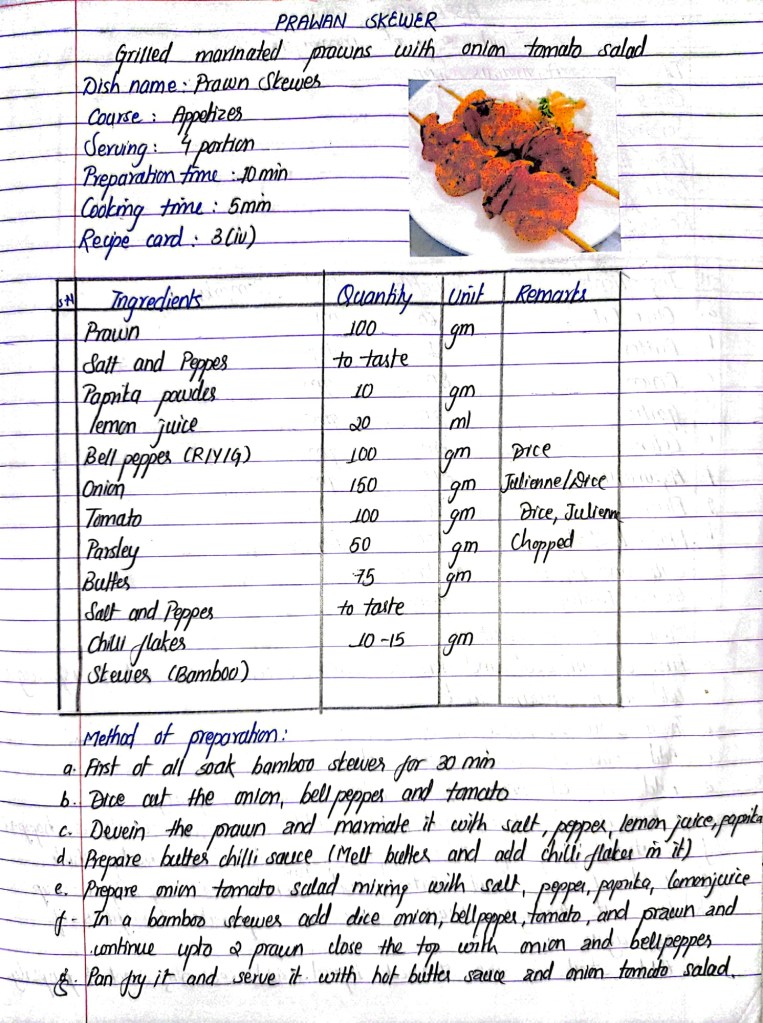 PRAWAN SKEWER
Grilled marinated prawns with onion tomato salad
Dish name: Prawn Skewer
Course: Appetizer
Serving: 4 portion
Preparation time: 10 min
Cooking time: 5min
Recipe card: 3(iv)
S.N Ingredients Quantity Unit Remarks
Prawn 100 gm
Salt and Pepper to taste
Paprika powder 10 gm
lemon juice 20 ml
Bell pepper (R/Y/G) 100 gm Dice
Onion 150 gm Julienne/Dice
Tomato 100 gm Dice, Julienne
Parsley 50 gm Chopped
Butter 75 gm
Salt and Pepper to taste
Chilli flakes 10-15 gm
Skewer (Bamboo)
Method of preparation:
a. First of all soak bamboo skewer for 20 min
b. Dice cut the onion, bell pepper and tomato
c. Devein the prawn and marinate it with salt, pepper, lemon juice, paprika
d. Prepare butter chilli sauce (Melt butter and add chilli flakes in it)
e. Prepare onion tomato salad mixing with salt, pepper, paprika, lemonjuice
f. In a bamboo skewer add dice onion, bellpepper, tomato, and prawn and
continue upto 2 prawn close the top with onion and bellpepper
g. Pan fry it and serve it with hot butter sauce and onion tomato salad.